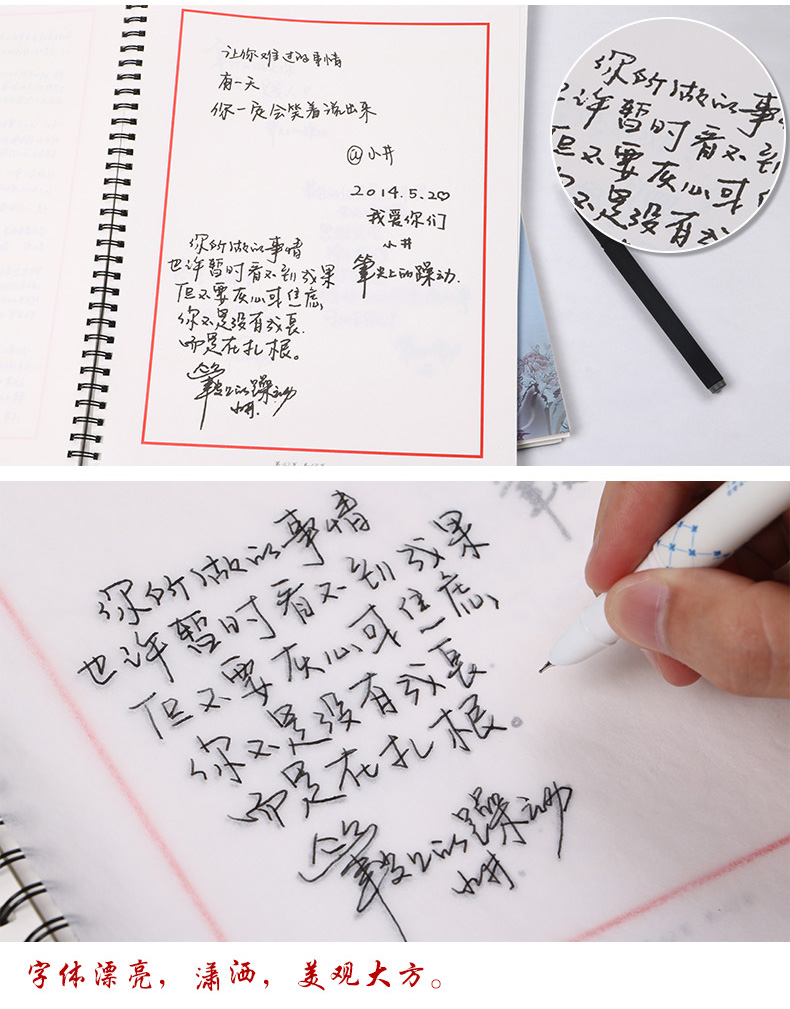 让你难过的事情
有一天
你一定会笑着说出来
@小井
2014.5.20♡
我爱你们
小井
筆尖上的躁动.
你的做的事情
也许暂时看不到成果
但不要灰心或焦虑,
你不是没有成長.
而是在扎根。
筆尖上的躁动
小井.
你的做的事
也许暂时看不到
但不要灰心或
你不是没有成
你的做的事情
也许暂时看不到成果
但不要灰心或焦虑,
你不是没有成長
而是在扎根。
筆尖上的躁动
小井
字体漂亮，潇洒，美观大方。